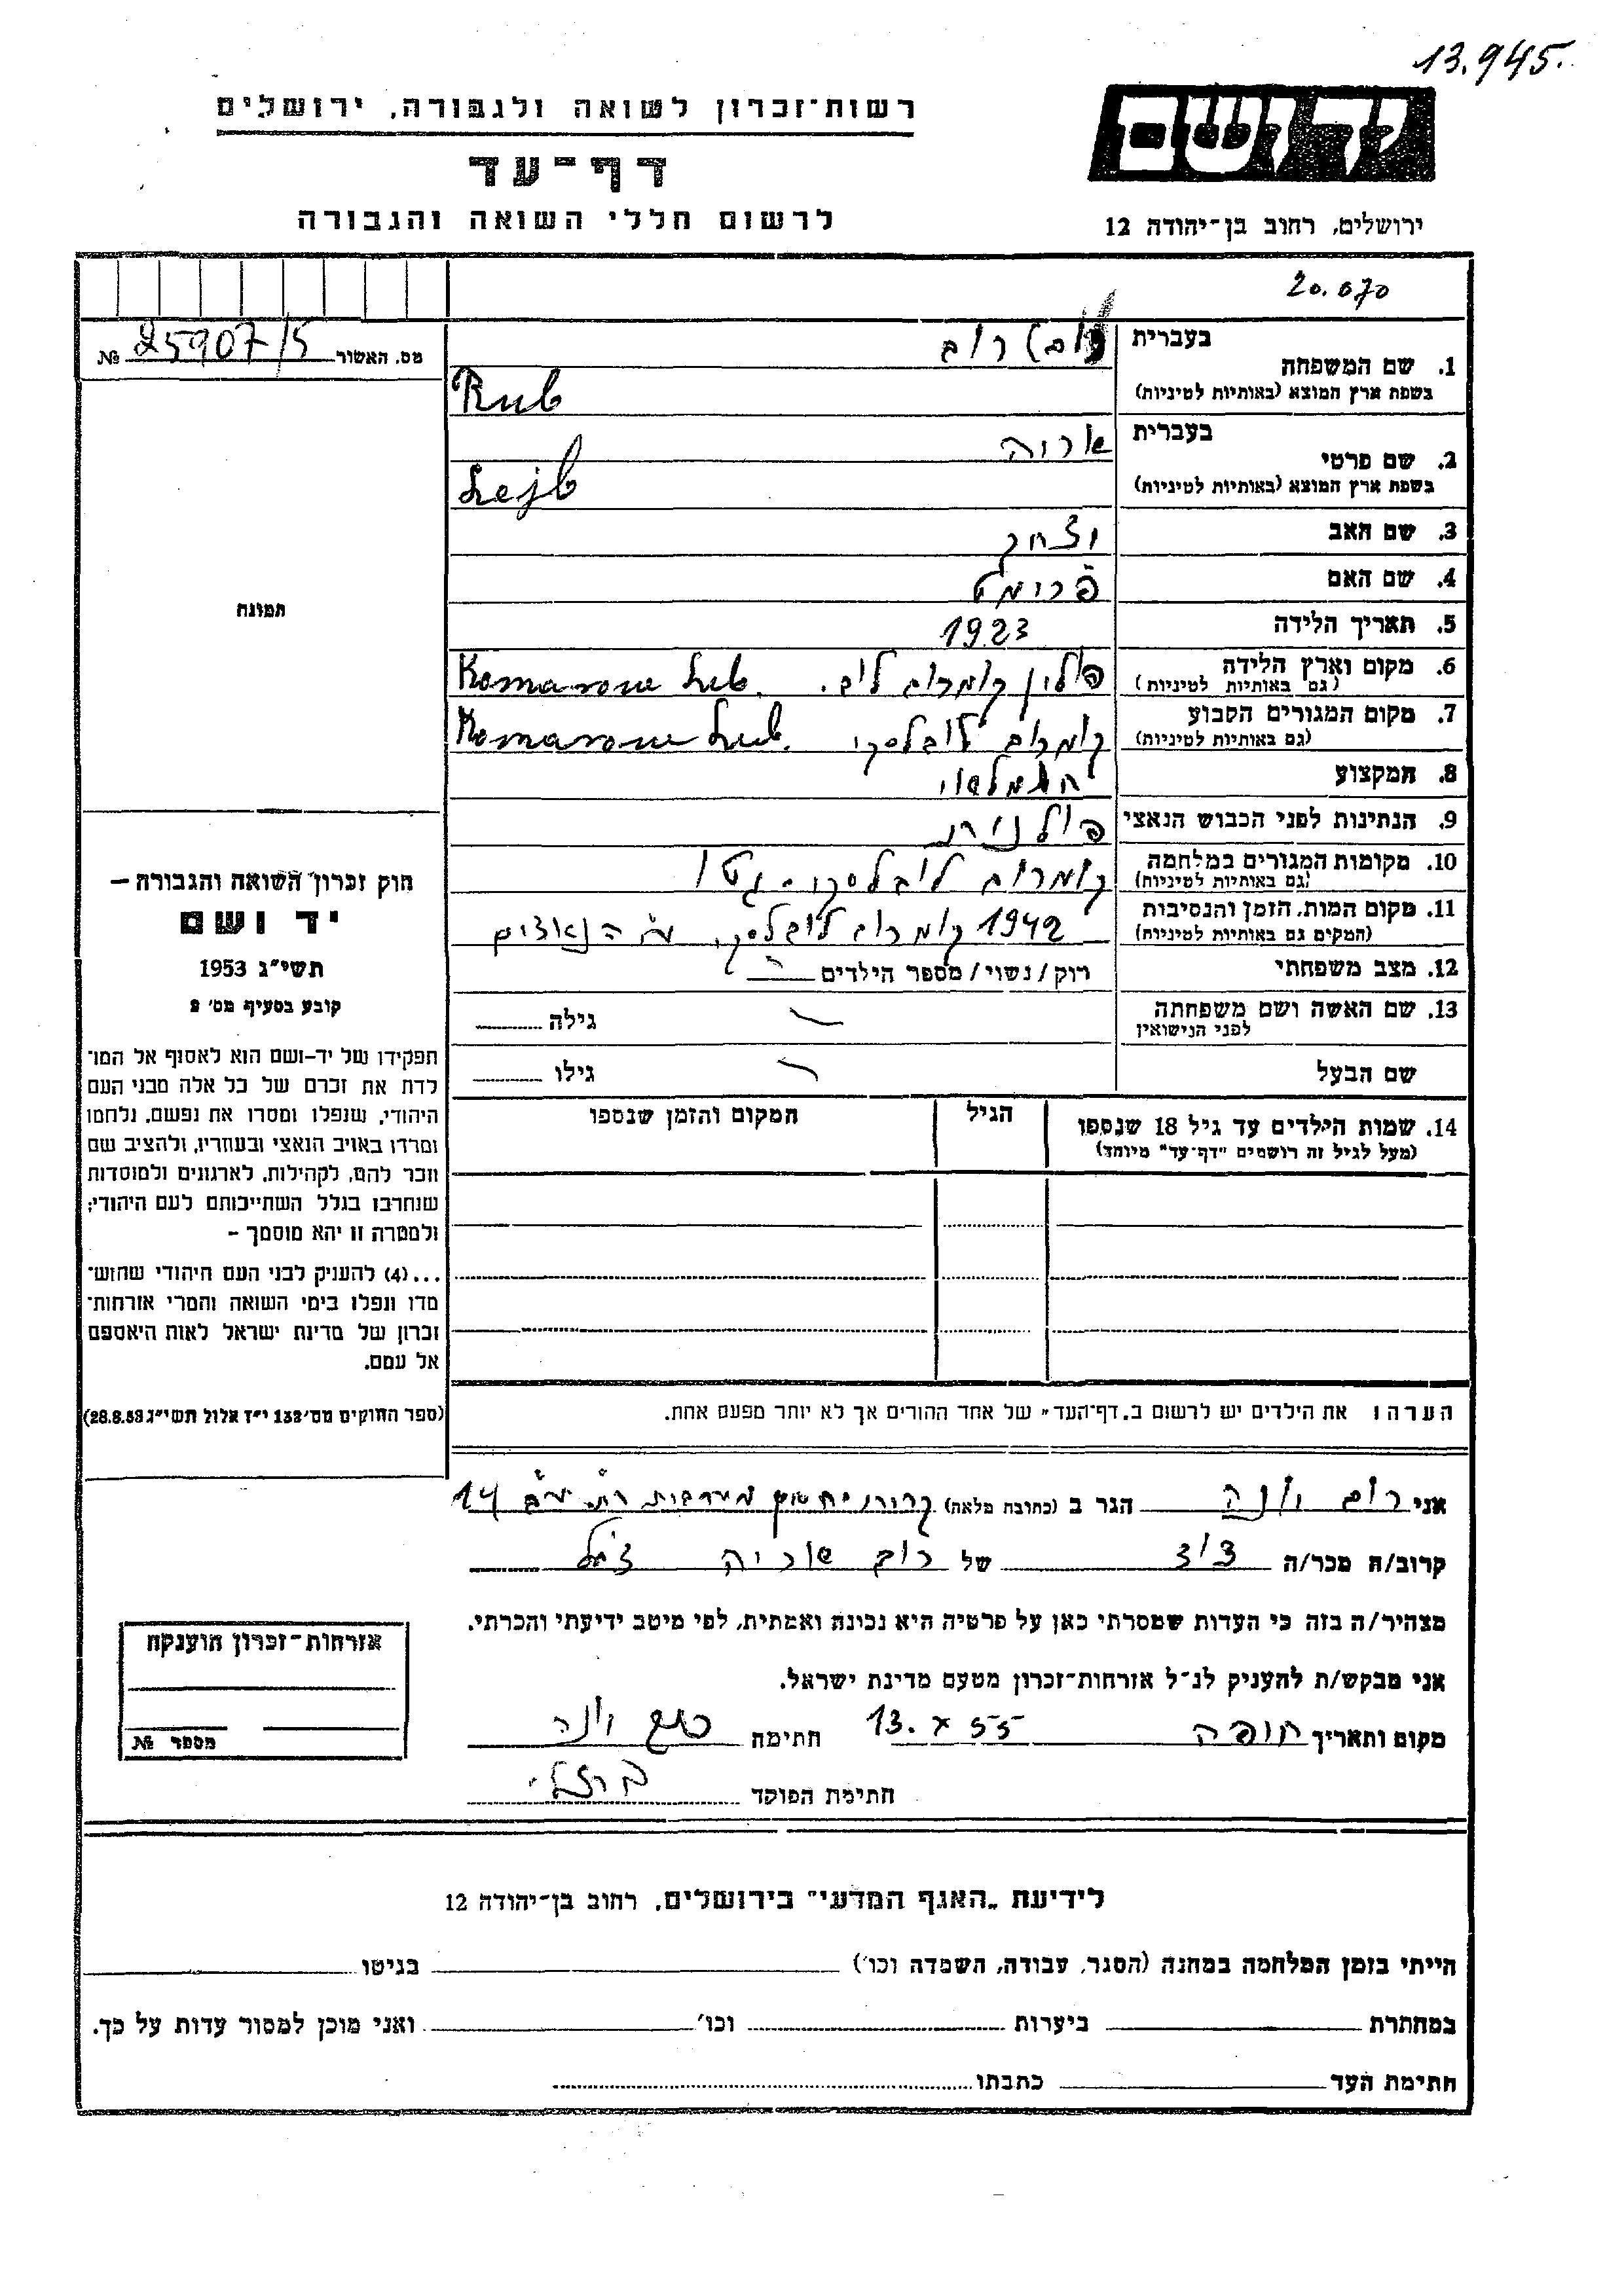 13.945.
רשות־זכרון לשואה ולגבורה, ירושלים
יד ושם
דף־עד
לרשום חללי השואה והגבורה
ירושלים, רחוב בן־יהודה 12
20.070
מס. האשור 25907/5 №
1. שם המשפחה בעברית רוב
בשפת ארץ המוצא (באותיות לטיניות) Rub
2. שם פרטי בעברית אריה
בשפת ארץ המוצא (באותיות לטיניות) Lejb
3. שם האב יצחק
4. שם האם פרומט
5. תאריך הלידה 1923
6. מקום וארץ הלידה פולין קומרוב לוב. Komarow Lub.
(גם באותיות לטיניות)
7. מקום המגורים הקבוע קומרוב לובלסקי Komarow Lub.
(גם באותיות לטיניות)
8. המקצוע חשמלאי
9. הנתינות לפני הכבוש הנאצי פולנית
10. מקומות המגורים במלחמה קומרוב לובלסקי - גטו
(גם באותיות לטיניות)
11. מקום המות, הזמן והנסיבות 1942 קומרוב לובלסקי, ע״י הנאצים
(המקום גם באותיות לטיניות)
12. מצב משפחתי רוק/נשוי/מספר הילדים
13. שם האשה ושם משפחתה גילה
לפני הנישואין
שם הבעל גילו
14. שמות הילדים עד גיל 18 שנספו הגיל המקום והזמן שנספו
(מעל לגיל זה רושמים "דף־עד" מיוחד)
הערה: את הילדים יש לרשום ב„דף־העד" של אחד ההורים אך לא יותר מפעם אחת.
תמונה
חוק זכרון השואה והגבורה –
יד ושם
תשי״ג 1953
קובע בסעיף מס׳ 2
תפקידו של יד-ושם הוא לאסוף אל המו־
לדת את זכרם של כל אלה מבני העם
היהודי, שנפלו ומסרו את נפשם, נלחמו
ומרדו באויב הנאצי ובעוזריו, ולהציב שם
וזכר להם, לקהילות, לארגונים ולמוסדות
שנחרבו בגלל השתייכותם לעם היהודי;
ולמטרה זו יהא מוסמך –
...(4) להעניק לבני העם היהודי שהוש־
מדו ונפלו בימי השואה והמרי אזרחות־
זכרון של מדינת ישראל לאות היאספם
אל עמם.
(ספר החוקים מס׳ 132 י״ז אלול תשי״ג 28.8.53)
אני רוב יונה הגר ב (כתובת מלאה) קרית 14
קרוב/ה מכר/ה של רוב אריה
מצהיר/ה בזה כי העדות שמסרתי כאן על פרטיה היא נכונה ואמתית, לפי מיטב ידיעתי והכרתי.
אני מבקש/ת להעניק לנ״ל אזרחות־זכרון מטעם מדינת ישראל.
מקום ותאריך חיפה 13. X 55 חתימה רוב יונה
חתימת הפוקד ברזלי
אזרחות־זכרון הוענקה
מספר №
לידיעת „האגף המדעי" בירושלים, רחוב בן־יהודה 12
הייתי בזמן המלחמה במחנה (הסגר, עבודה, השמדה וכו׳) בגיטו
במחתרת ביערות וכו׳ ואני מוכן למסור עדות על כך.
חתימת העד כתבתו